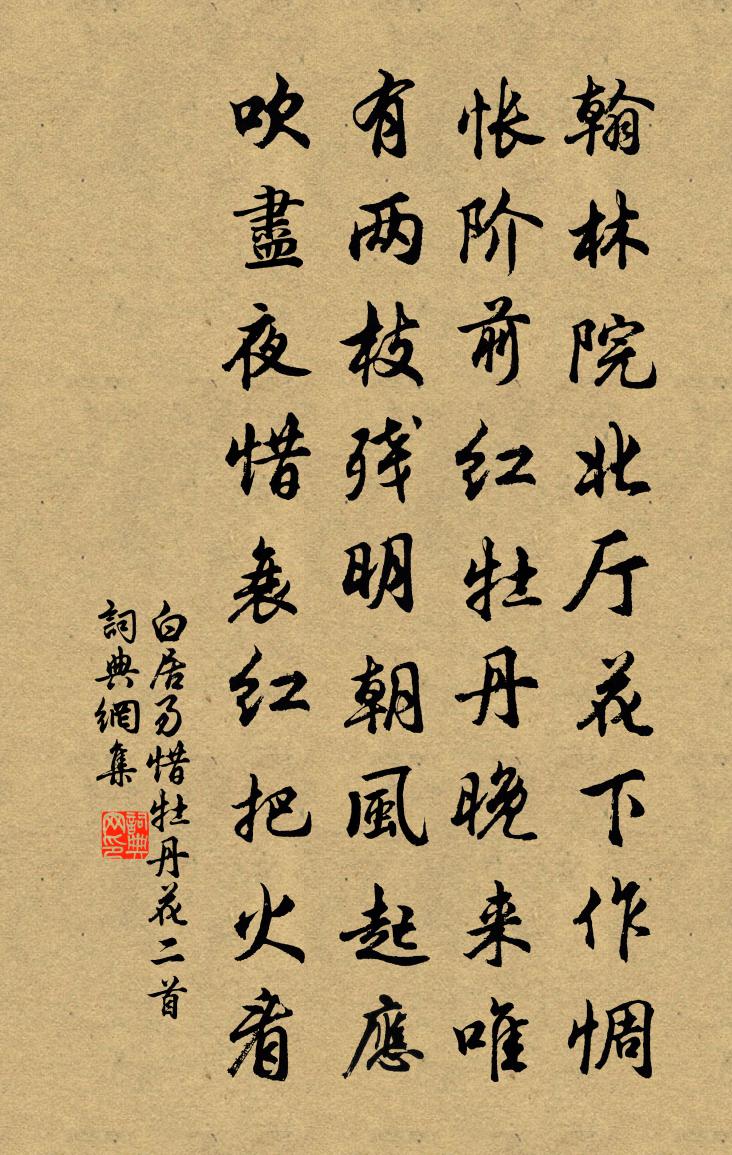 翰林院北厅花下作惆
怅阶前红牡丹晚来唯
有两枝残明朝風起應
吹盡夜惜衰红把火看
白居易惜牡丹花二首
詞典網集
詞典网印